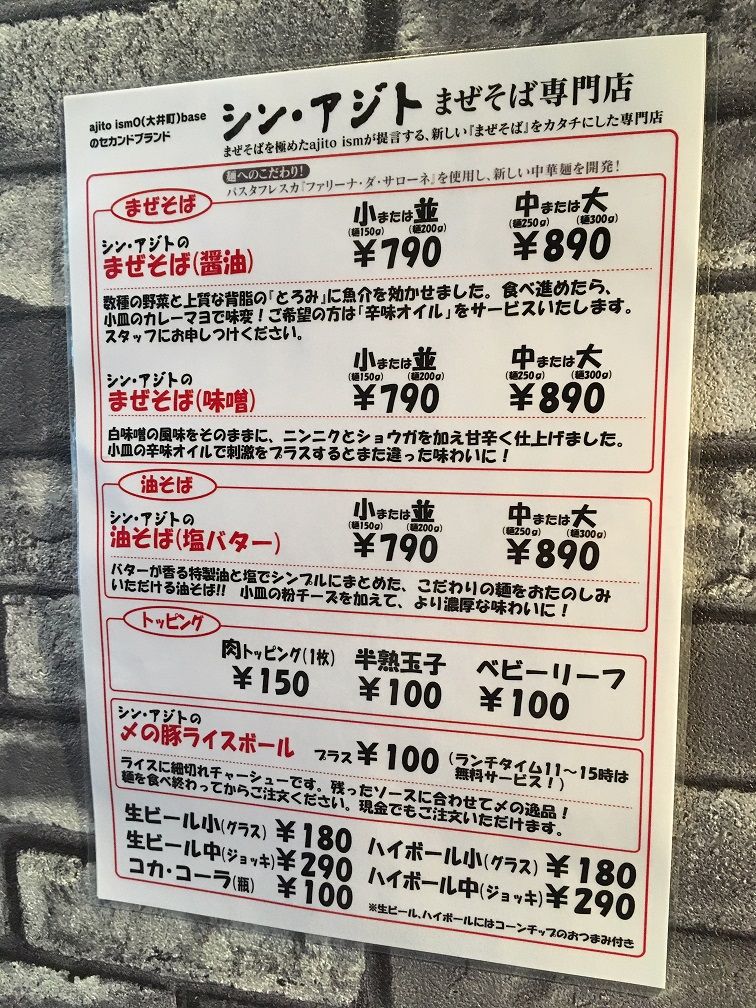 ajito ismO(大井町)base
のセカンドブランド
シン・アジト まぜそば専門店
まぜそばを極めたajito ismが提言する、新しい『まぜそば』をカタチにした専門店
麺へのこだわり！
パスタフレスカ『ファリーナ・ダ・サローネ』を使用し、新しい中華麺を開発！
まぜそば
小または並 中または大
(麺150g) (麺200g) (麺250g) (麺300g)
シン・アジトの
まぜそば(醤油) ￥790 ￥890
数種の野菜と上質な背脂の「とろみ」に魚介を効かせました。食べ進めたら、
小皿のカレーマヨで味変！ご希望の方は「辛味オイル」をサービスいたします。
スタッフにお申しつけください。
小または並 中または大
(麺150g) (麺200g) (麺250g) (麺300g)
シン・アジトの
まぜそば(味噌) ￥790 ￥890
白味噌の風味をそのままに、ニンニクとショウガを加え甘辛く仕上げました。
小皿の辛味オイルで刺激をプラスするとまた違った味わいに！
油そば
小または並 中または大
(麺150g) (麺200g) (麺250g) (麺300g)
シン・アジトの
油そば(塩バター) ￥790 ￥890
バターが香る特製油と塩でシンプルにまとめた、こだわりの麺をおたのしみ
いただける油そば!! 小皿の粉チーズを加えて、より濃厚な味わいに！
トッピング
肉トッピング(1枚) 半熟玉子 ベビーリーフ
￥150 ￥100 ￥100
シン・アジトの
〆の豚ライスボール プラス￥100 (ランチタイム11〜15時は
無料サービス！)
ライスに細切れチャーシューです。残ったソースに合わせて〆の逸品！
麺を食べ終わってからご注文ください。現金でもご注文いただけます。
生ビール小(グラス) ￥180 ハイボール小(グラス) ￥180
生ビール中(ジョッキ) ￥290 ハイボール中(ジョッキ) ￥290
コカ・コーラ(瓶) ￥100
※生ビール、ハイボールにはコーンチップのおつまみ付き